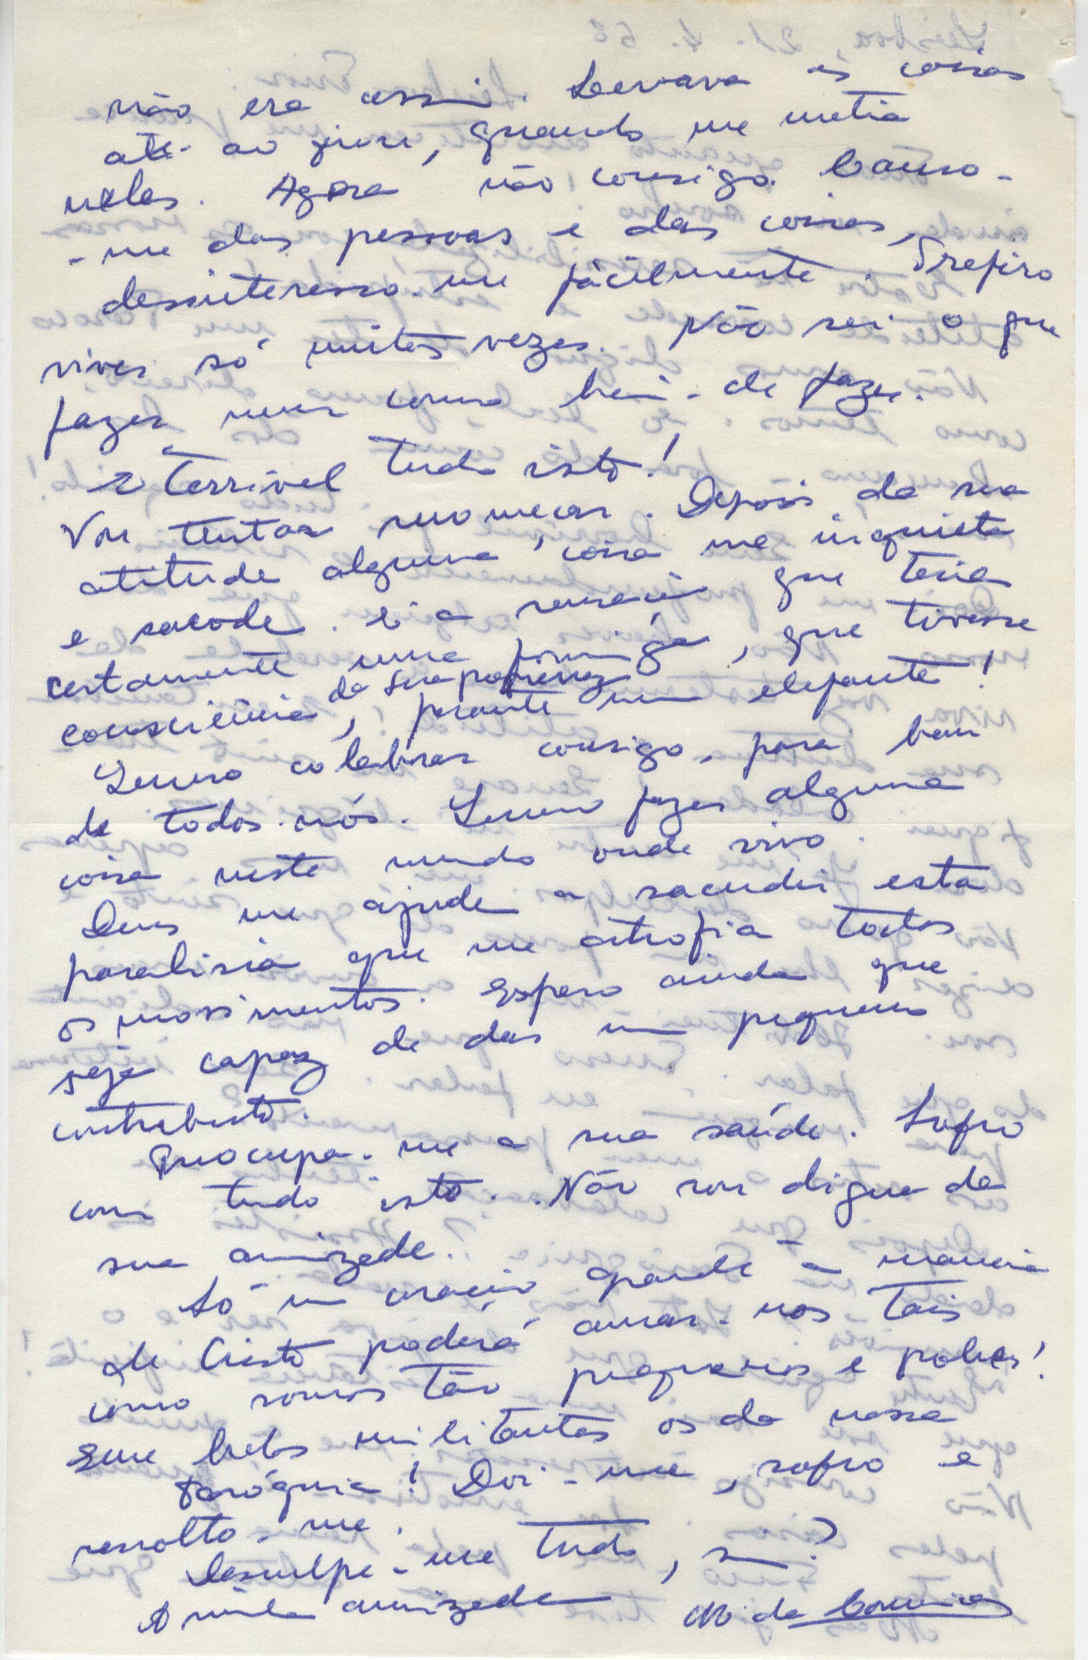 não era assim. Levava as coisas
até ao fim, quando me metia
nelas. Agora não consigo. Canso-
-me das pessoas e das coisas,
desinteresso-me fàcilmente. Prefiro
viver só muitas vezes. Não sei o que
fazer nem como hei-de fazer.
É terrível tudo isto!
Vou tentar recomeçar. Depois da sua
atitude alguma coisa me inquieta
e sacode. É a sensação que teria
certamente uma formiga, que tivesse
consciência da sua pequenez, perante um elefante!
Quero colaborar consigo, para bem
de todos nós. Quero fazer alguma
coisa neste mundo onde vivo.
Deus me ajude a sacudir esta
paralisia que me atrofia todos
os movimentos. Espero ainda que
seja capaz de dar um pequeno
contributo.
Preocupa-me a sua saúde. Sofro
com tudo isto. Não sou digna da
sua amizade.
Só um coração grande à maneira
de Cristo poderá amar-nos tais
como somos tão pequenos e pobres!
Que belos militantes os da nossa
Paróquia! Doi-me, sofro e
revolto-me.
Desculpe-me tudo, sim?
A minha amizade